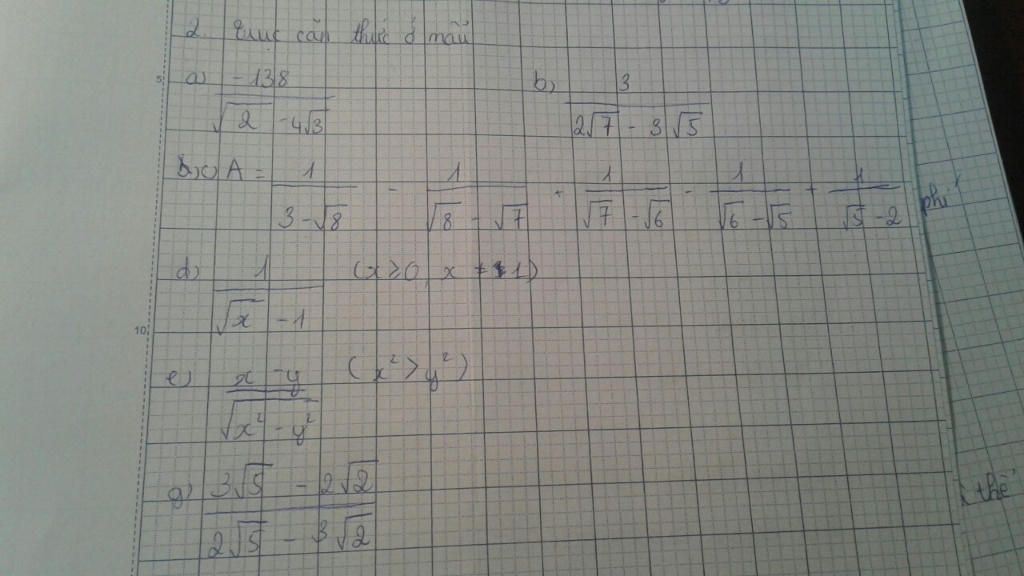 2. căn thức ở mẫu
a) -138 / (√2 - 4√3) b) 3 / (2√7 - 3√5)
c) A = 1 / (3 - √8) - 1 / (√8 - √7) + 1 / (√7 - √6) - 1 / (√6 - √5) + 1 / (√5 - 2)
phi
d) 1 / (√x - 1) (x ≥ 0, x ≠ 1)
10
e) (x - y) / √(x² - y²) (x² > y²)
g) (3√5 - 2√2) / (2√5 - 3√2)
thể